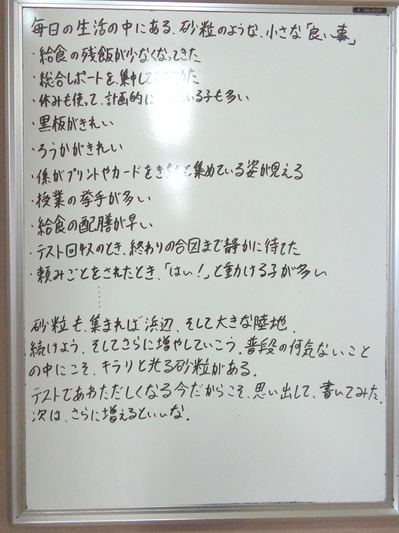 毎日の生活の中にある、砂粒のような、小さな「良い事」
・給食の残飯が少なくなってきた
・総合レポートを、集中して
・休みも使って、計画的に いる子も多い
・黒板がきれい
・ろうかがきれい
・係がプリントやカードをきちんと集めている姿が見える
・授業の挙手が多い
・給食の配膳が早い
・テスト回収のとき、終わりの合図まで静かに待てた
・頼みごとをされたとき、「はい!」と動ける子が多い
⋮
砂粒も、集まれば浜辺、そして大きな陸地。
続けよう、そしてさらに増やしていこう。普段の何気ないこと
の中にこそ、キラリと光る砂粒がある。
テストであわただしくなる今だからこそ、思い出して、書いてみた。
次は、さらに増えるといいな。